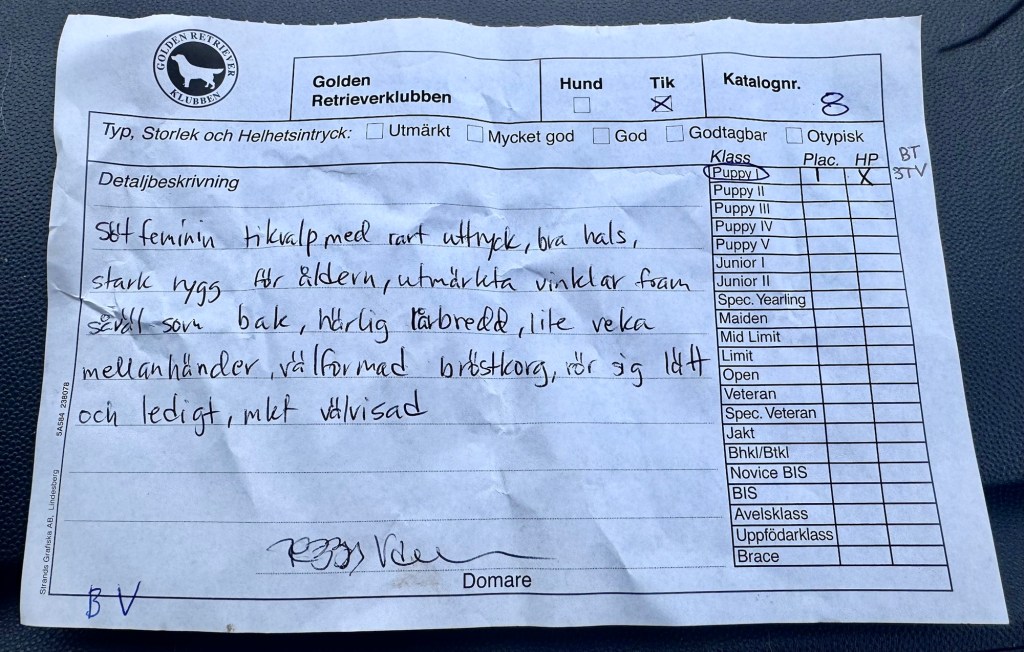 GOLDEN RETRIEVER
KLUBBEN
Golden
Retrieverklubben
Hund Tik
Katalognr.
8
Typ, Storlek och Helhetsintryck: Utmärkt Mycket god God Godtagbar Otypisk
Klass Plac. HP
BT
3TV
Puppy I 1 X
Puppy II
Puppy III
Puppy IV
Puppy V
Junior I
Junior II
Spec. Yearling
Maiden
Mid Limit
Limit
Open
Veteran
Spec. Veteran
Jakt
Bhkl/Btkl
Novice BIS
BIS
Avelsklass
Uppfödarklass
Brace
Detaljbeskrivning
Söt feminin tikvalp med rart uttryck, bra hals,
stark rygg för åldern, utmärkta vinklar fram
såväl som bak, härlig lårbredd, lite veka
mellanhänder, välformad bröstkorg, rör sig lätt
och ledigt, mkt välvisad
Domare
B V
Strands Grafiska AB, Lindesberg 5A584 238078